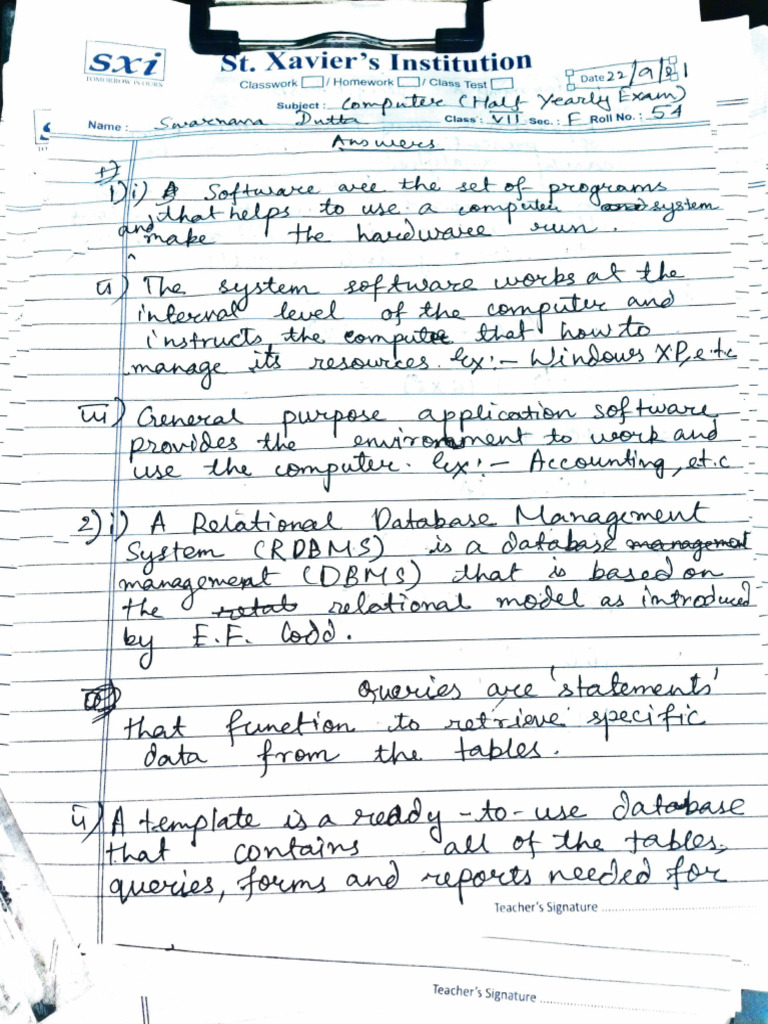 sxi
TOMORROW IS OURS
St. Xavier's Institution
Classwork / Homework / Class Test
Date 22/9/21
Subject : Computer (Half Yearly Exam)
Name : Swarnava Dutta Class : VII Sec. : F Roll No. : 54
Answers
1)i) Software are the set of programs
that helps to use a computer system
and make the hardware run.
ii) The system software works at the
internal level of the computer and
instructs the computer that how to
manage its resources. Ex:- Windows XP, e.t.c
iii) General purpose application software
provides the environment to work and
use the computer. Ex:- Accounting, et.c
2)i) A Relational Database Management
System (RDBMS) is a database management
management (DBMS) that is based on
the relational model as introduced
by E.F. Codd.
Queries are 'statements'
that function to retrieve specific
data from the tables.
ii) A template is a ready-to-use database
that contains all of the tables,
queries, forms and reports needed for
Teacher's Signature
Teacher's Signature